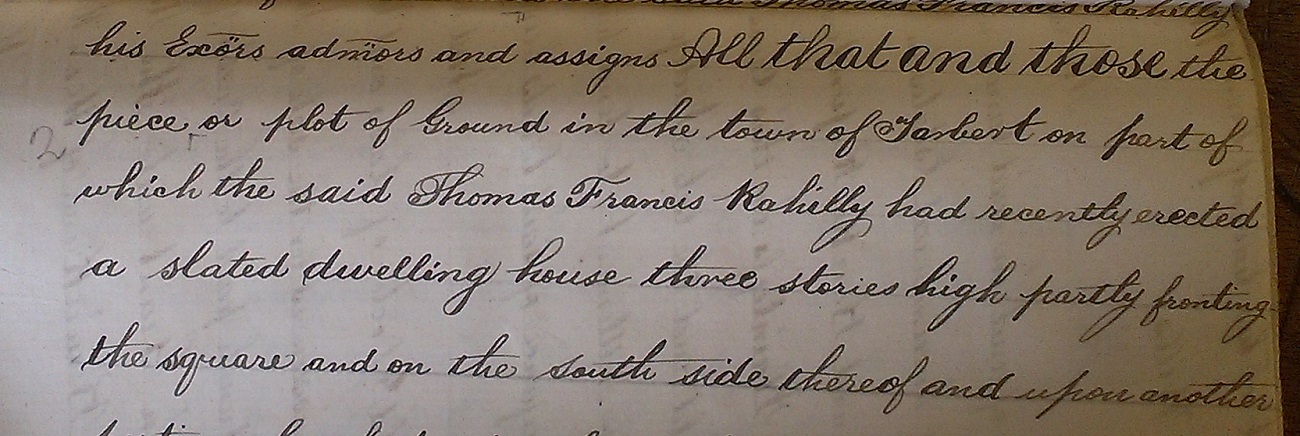 said Thomas Francis Rahilly
his Exors admors and assigns All that and those the
piece or plot of Ground in the town of Tarbert on part of
2
which the said Thomas Francis Rahilly had recently erected
a slated dwelling house three stories high partly fronting
the square and on the south side thereof and upon another